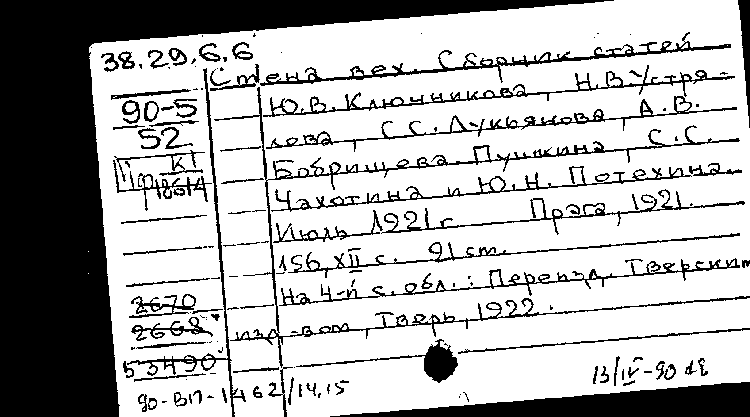 38.29.6.6
Стена вех. Сборник статей
90-5
Ю.В. Ключникова, Н.В. Устря-
52
лова, С.С. Лукьянова, А.В.
К1
Бобрищева-Пушкина, С.С.
18614
Чахотина и Ю.Н. Потехина.
Июль 1921 г Прага, 1921.
156, XII с. 21 см.
На 4-й с. обл.: Переизд. Тверским
2670
2668
изд-вом, Тверь, 1922.
53490
90-ВП-1462/14,15
13/IV-90